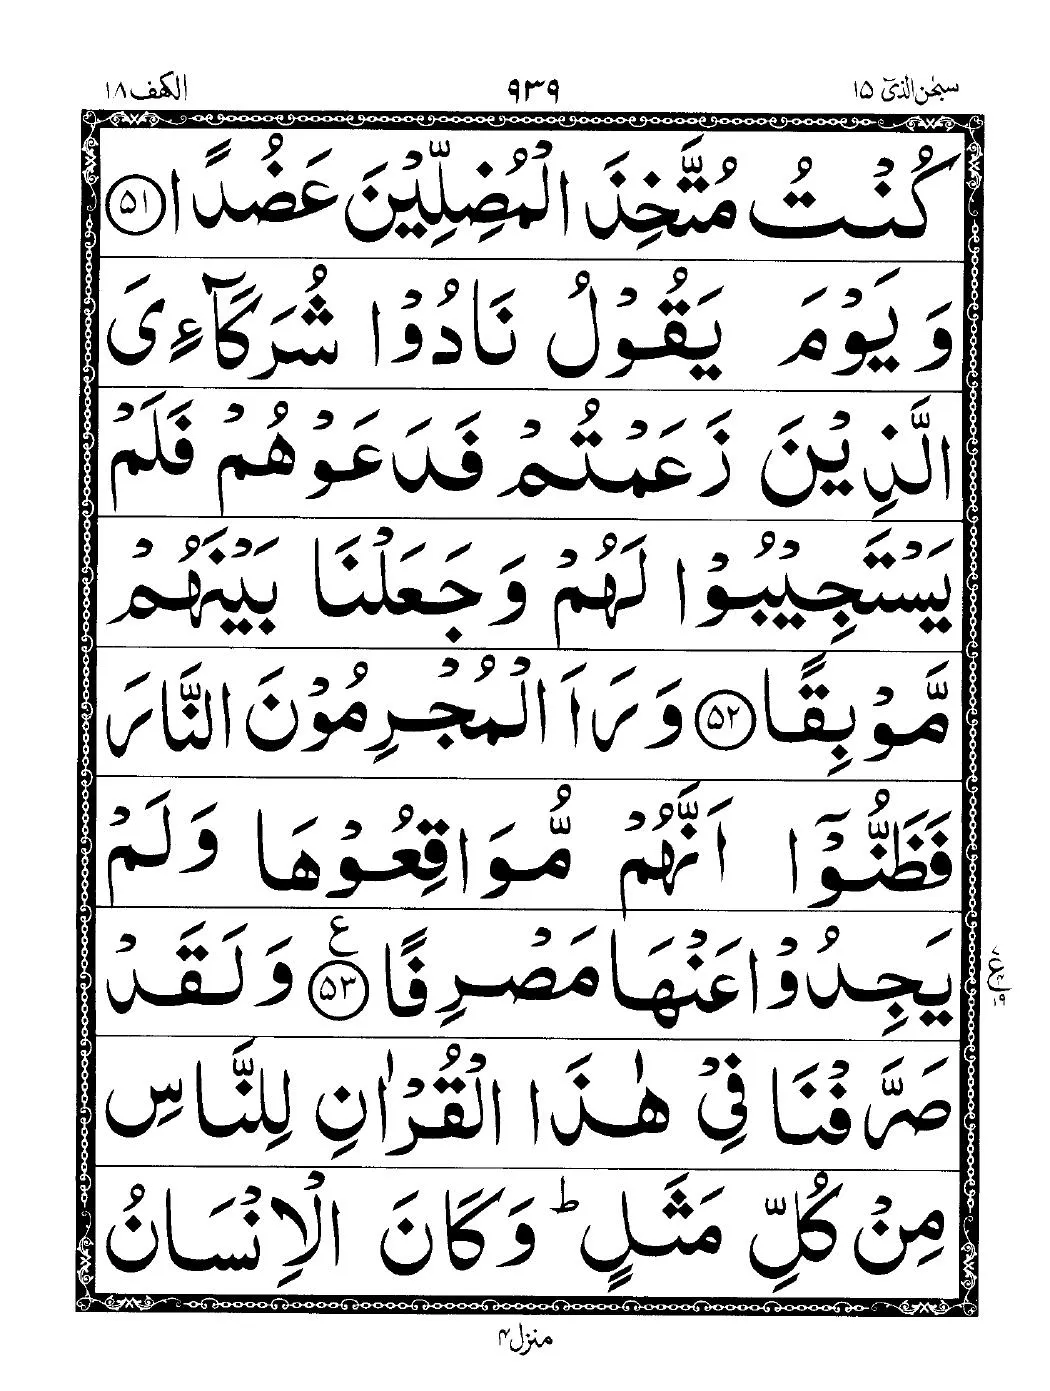 سبحٰن الذیٓ ۱۵ ۹۳۹ الکهف ۱۸
کُنْتُ مُتَّخِذَ الْمُضِلِّیْنَ عَضُدًا ﴿۵۱﴾
وَ یَوْمَ یَقُوْلُ نَادُوْا شُرَکَآءِیَ
الَّذِیْنَ زَعَمْتُمْ فَدَعَوْهُمْ فَلَمْ
یَسْتَجِیْبُوْا لَهُمْ وَ جَعَلْنَا بَیْنَهُمْ
مَّوْبِقًا ﴿۵۲﴾ وَ رَاَ الْمُجْرِمُوْنَ النَّارَ
فَظَنُّوْۤا اَنَّهُمْ مُّوَاقِعُوْهَا وَ لَمْ
یَجِدُوْا عَنْهَا مَصْرِفًا ﴿۵۳﴾ ع وَ لَقَدْ
صَرَّفْنَا فِیْ هٰذَا الْقُرْاٰنِ لِلنَّاسِ
مِنْ کُلِّ مَثَلٍ ؕ وَ کَانَ الْاِنْسَانُ
منزل ۴